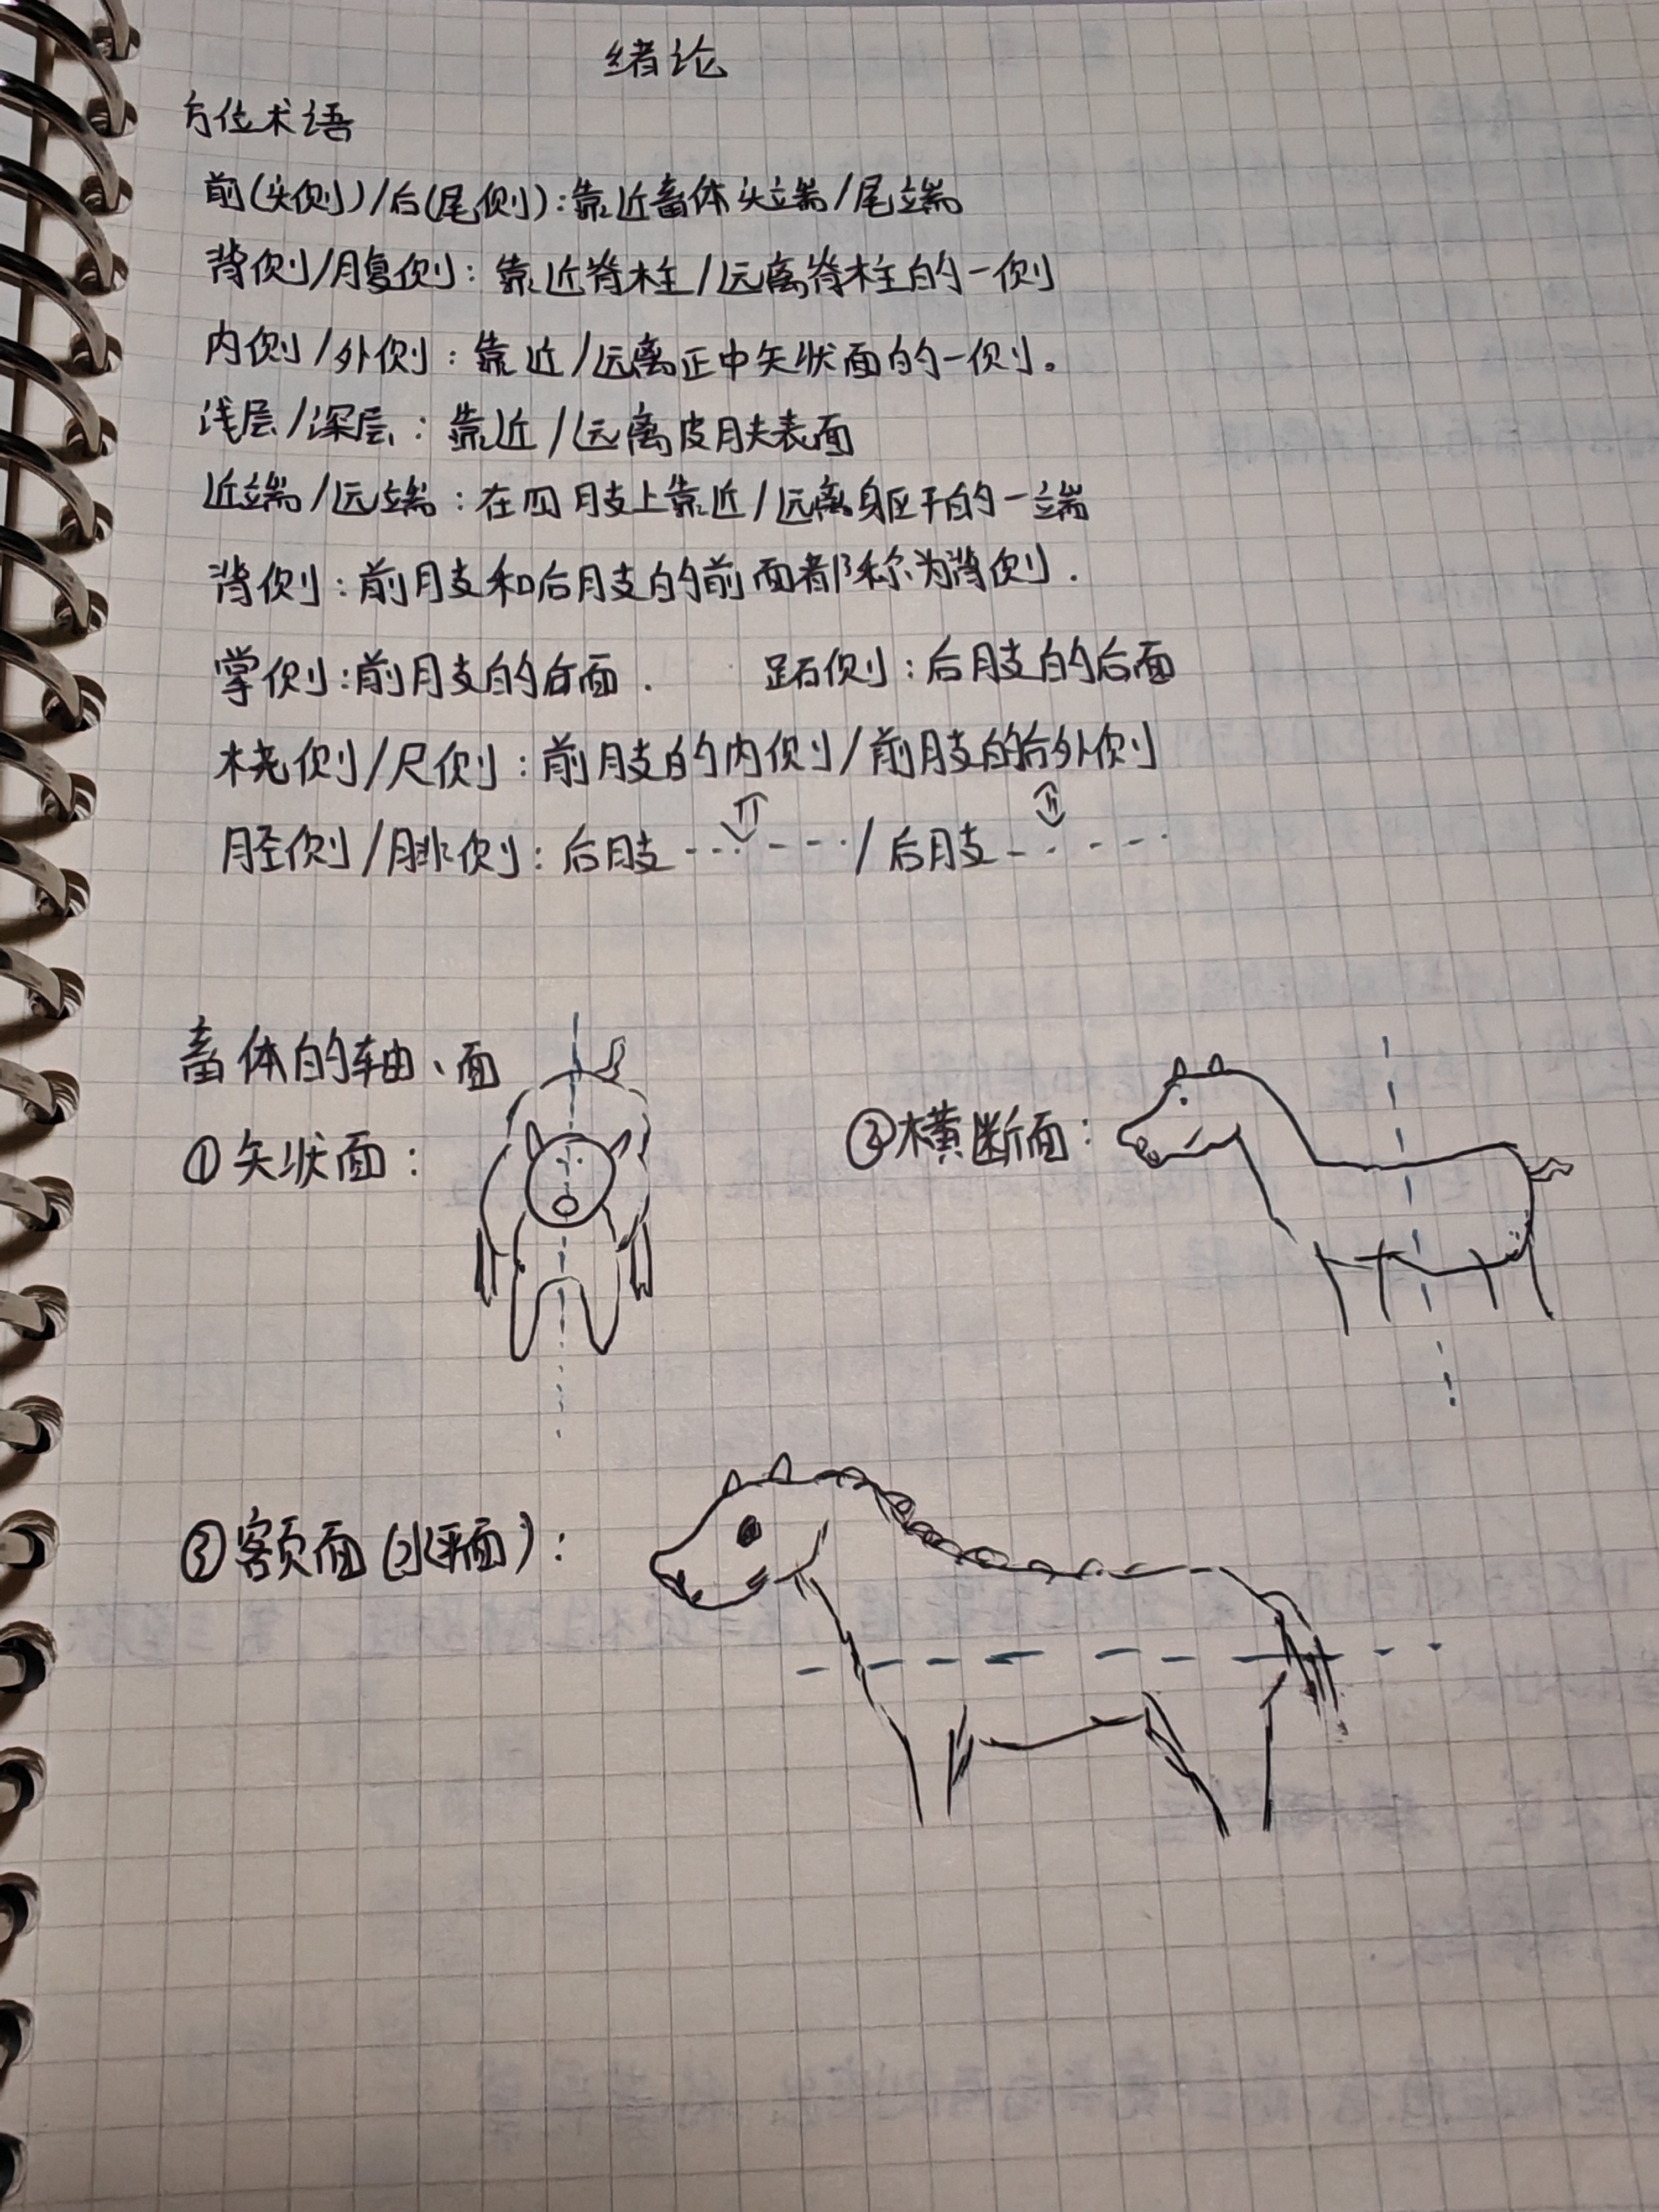 绪论
方位术语
前(头侧)/后(尾侧):靠近畜体头端/尾端
背侧/腹侧:靠近脊柱/远离脊柱的一侧
内侧/外侧:靠近/远离正中矢状面的一侧。
浅层/深层:靠近/远离皮肤表面
近端/远端:在四肢上靠近/远离躯干的一端
背侧:前肢和后肢的前面都称为背侧.
掌侧:前肢的后面. 跖侧:后肢的后面
桡侧/尺侧:前肢的内侧/前肢的外侧
胫侧/腓侧:后肢------/后肢-----
畜体的轴、面
①矢状面:
②横断面:
③额面(水平面):